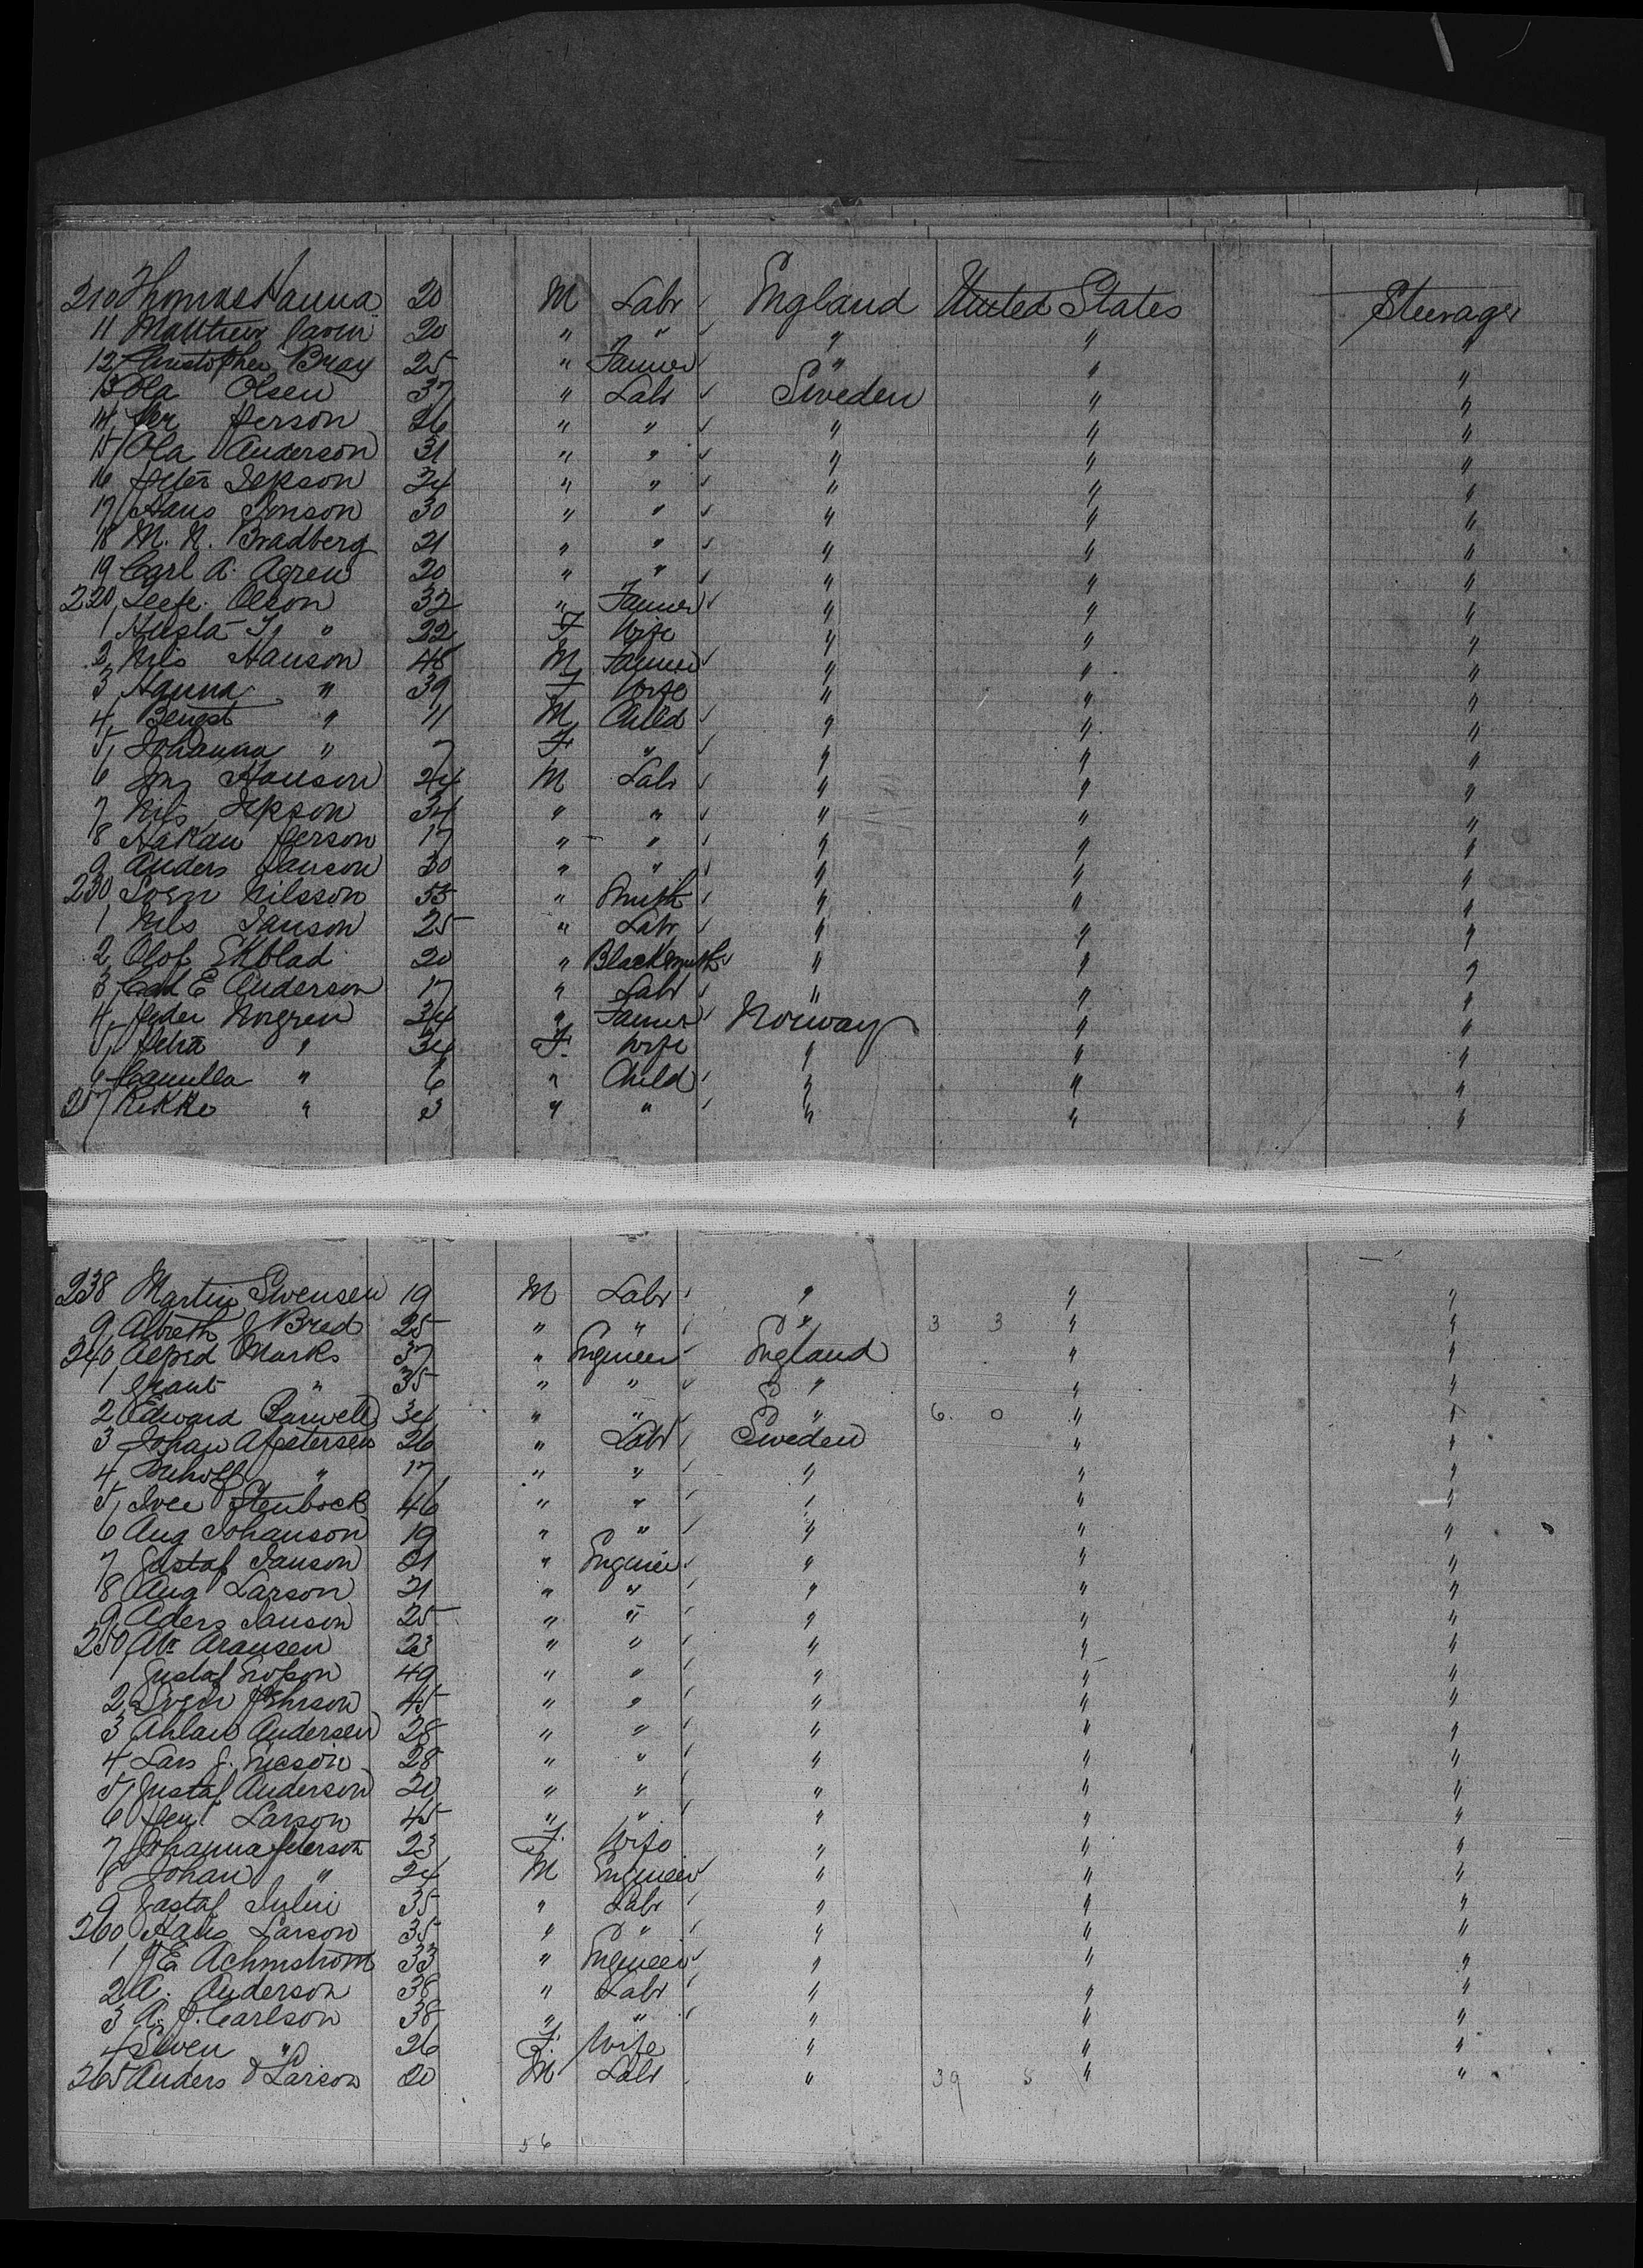 210 Thomas Hanna 20 M Labr England United States Steerage
11 Matthew 20 " " " " "
12 Christopher Bray 25 " Farmer " " "
13 Ola Olsen 37 " Labr Sweden " "
14 Per Person 26 " " " " "
15 Ola Anderson 31 " " " " "
16 Peter Jepson 24 " " " " "
17 Hans Jonson 30 " " " " "
18 M. N. Bradberg 21 " " " " "
19 Carl A. Agren 20 " " " " "
220 Olson 32 " Farmer " " "
1 " 22 F Wife " " "
2 Nils Hanson 48 M Farmer " " "
3 Hanna " 39 F Wife " " "
4 Bengt " 11 M Child " " "
5 Johanna " 7 F " " " "
6 Hanson 24 M Labr " " "
7 Nils Jepson 34 " " " " "
8 Hakan Person 17 " " " " "
9 Anders Hanson 30 " " " " "
230 Sven Nilsson 53 " Smith " " "
1 Nils Janson 25 " Labr " " "
2 Olof Ekblad 20 " Blacksmith " " "
3 Carl E Anderson 17 " Labr " " "
4 Peder Norgren 34 " Farmer Norway " "
5 Petra " 34 F. Wife " " "
6 Camilla " 6 " Child " " "
237 Rikke " 3 " " " " "
238 Martin Swensen 19 M Labr " " "
9 Bred 25 " " " 3 3 " "
240 Alfred Marks 37 " Engineer England " "
1 Grant " 35 " " " " "
2 Edward Barwell 34 " " " 6. 0 " "
3 Johan A Petersen 26 " Labr Sweden " "
4 " 17 " " " " "
5 Stenbock 46 " " " " "
6 Aug Johanson 19 " " " " "
7 Gustaf Janson 21 " Engineer " " "
8 Aug Larson 21 " " " " "
9 Aders Janson 25 " " " " "
250 Aransen 23 " " " " "
1 Gustaf 49 " " " " "
2 Sven 45 " " " " "
3 Andersen 28 " " " " "
4 Lars J. Ericson 28 " " " " "
5 Gustaf Anderson 20 " " " " "
6 Larson 45 " " " " "
7 Johanna Peterson 23 F. Wife " " "
8 Johan " 24 M Engineer " " "
9 Gustaf Julin 35 " Labr " " "
260 Hans Larson 35 " " " " "
1 J E Achmstrom 33 " Engineer " " "
2 A. Anderson 38 " Labr " " "
3 A. P. Carlson 38 " " " " "
4 Swen " 26 F. Wife " " "
265 Anders Larson 20 M Labr " 39 5 " "
56